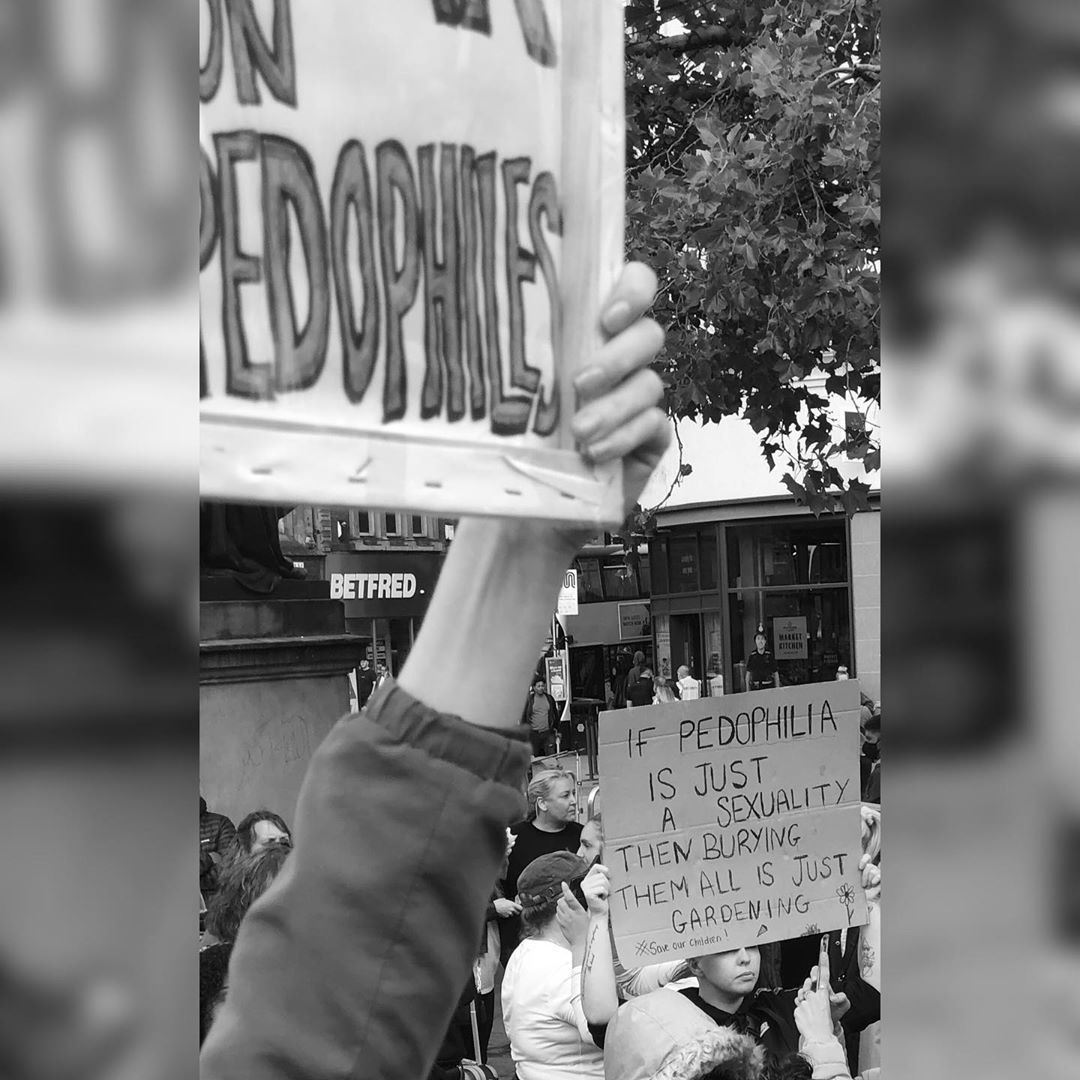 ON
PEDOPHILES
BETFRED
MARKET
KITCHEN
IF PEDOPHILIA
IS JUST
A SEXUALITY
THEN BURYING
THEM ALL IS JUST
GARDENING
#Save our children!